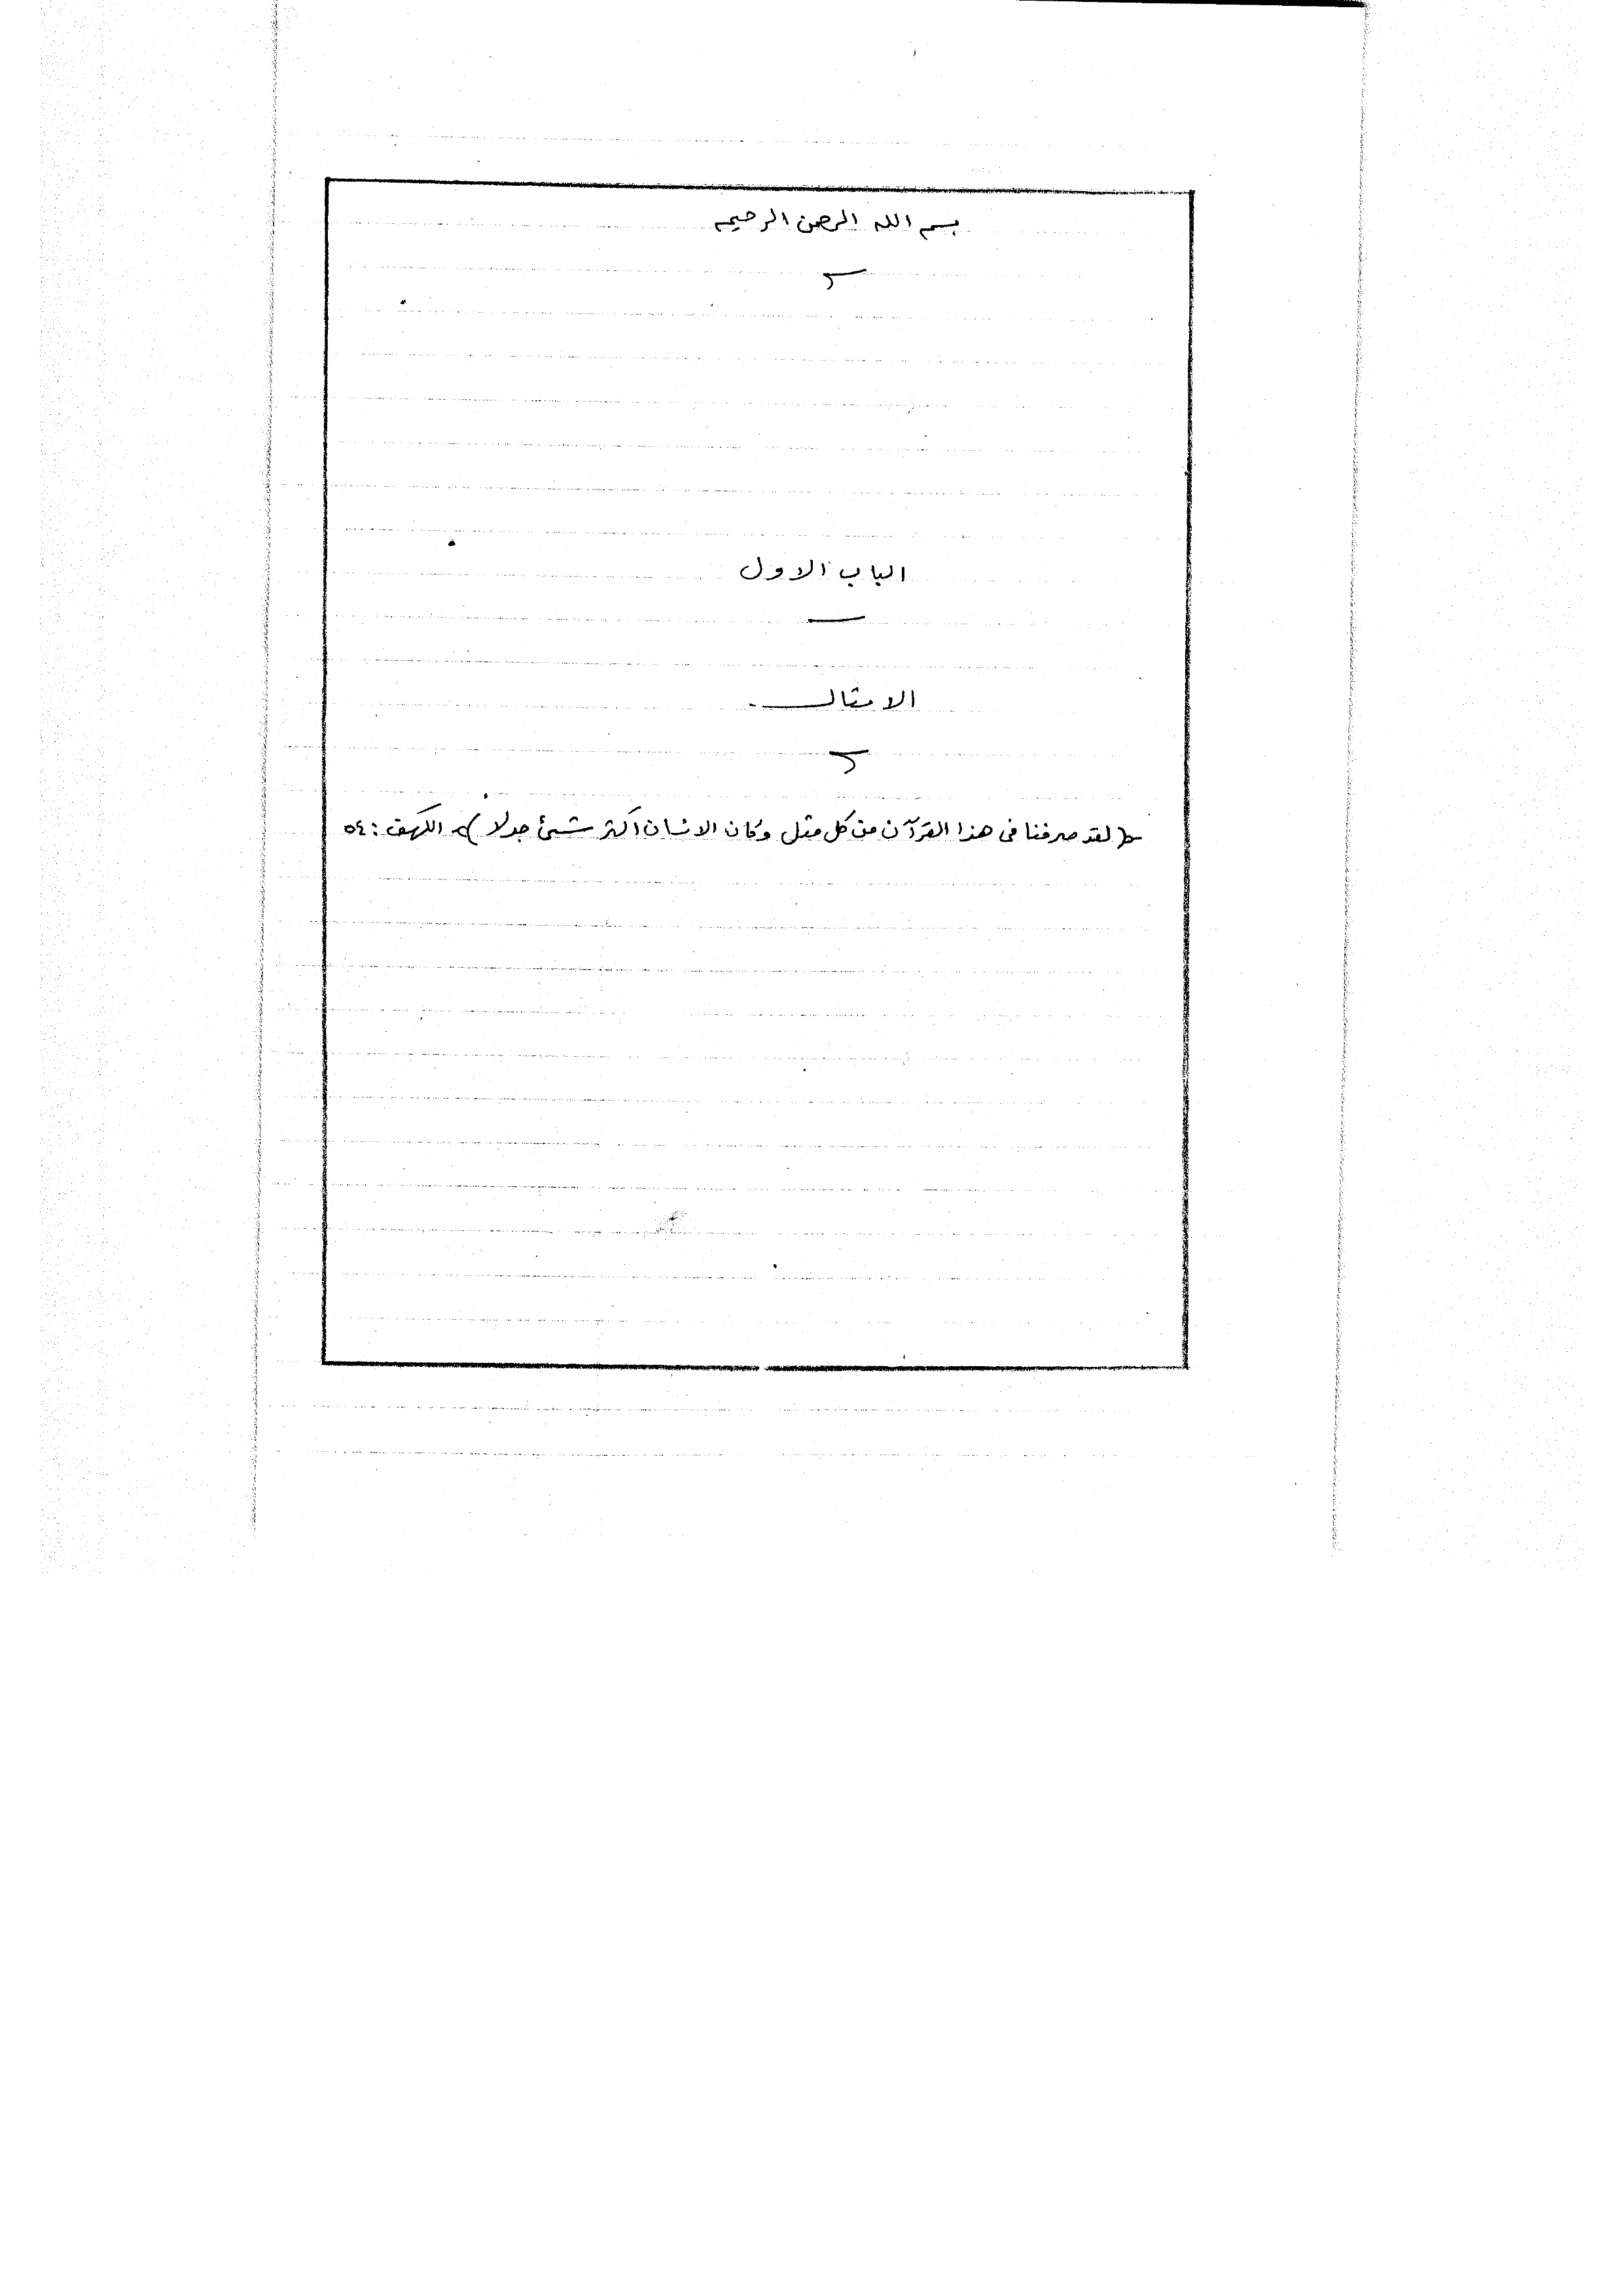 بسم الله الرحمن الرحيم
الباب الاول
الامثال
﴿ لقد صرفنا فى هذا القرآن من كل مثل وكان الانسان اكثر شىئ جدلا ﴾ الكهف : ٥٤